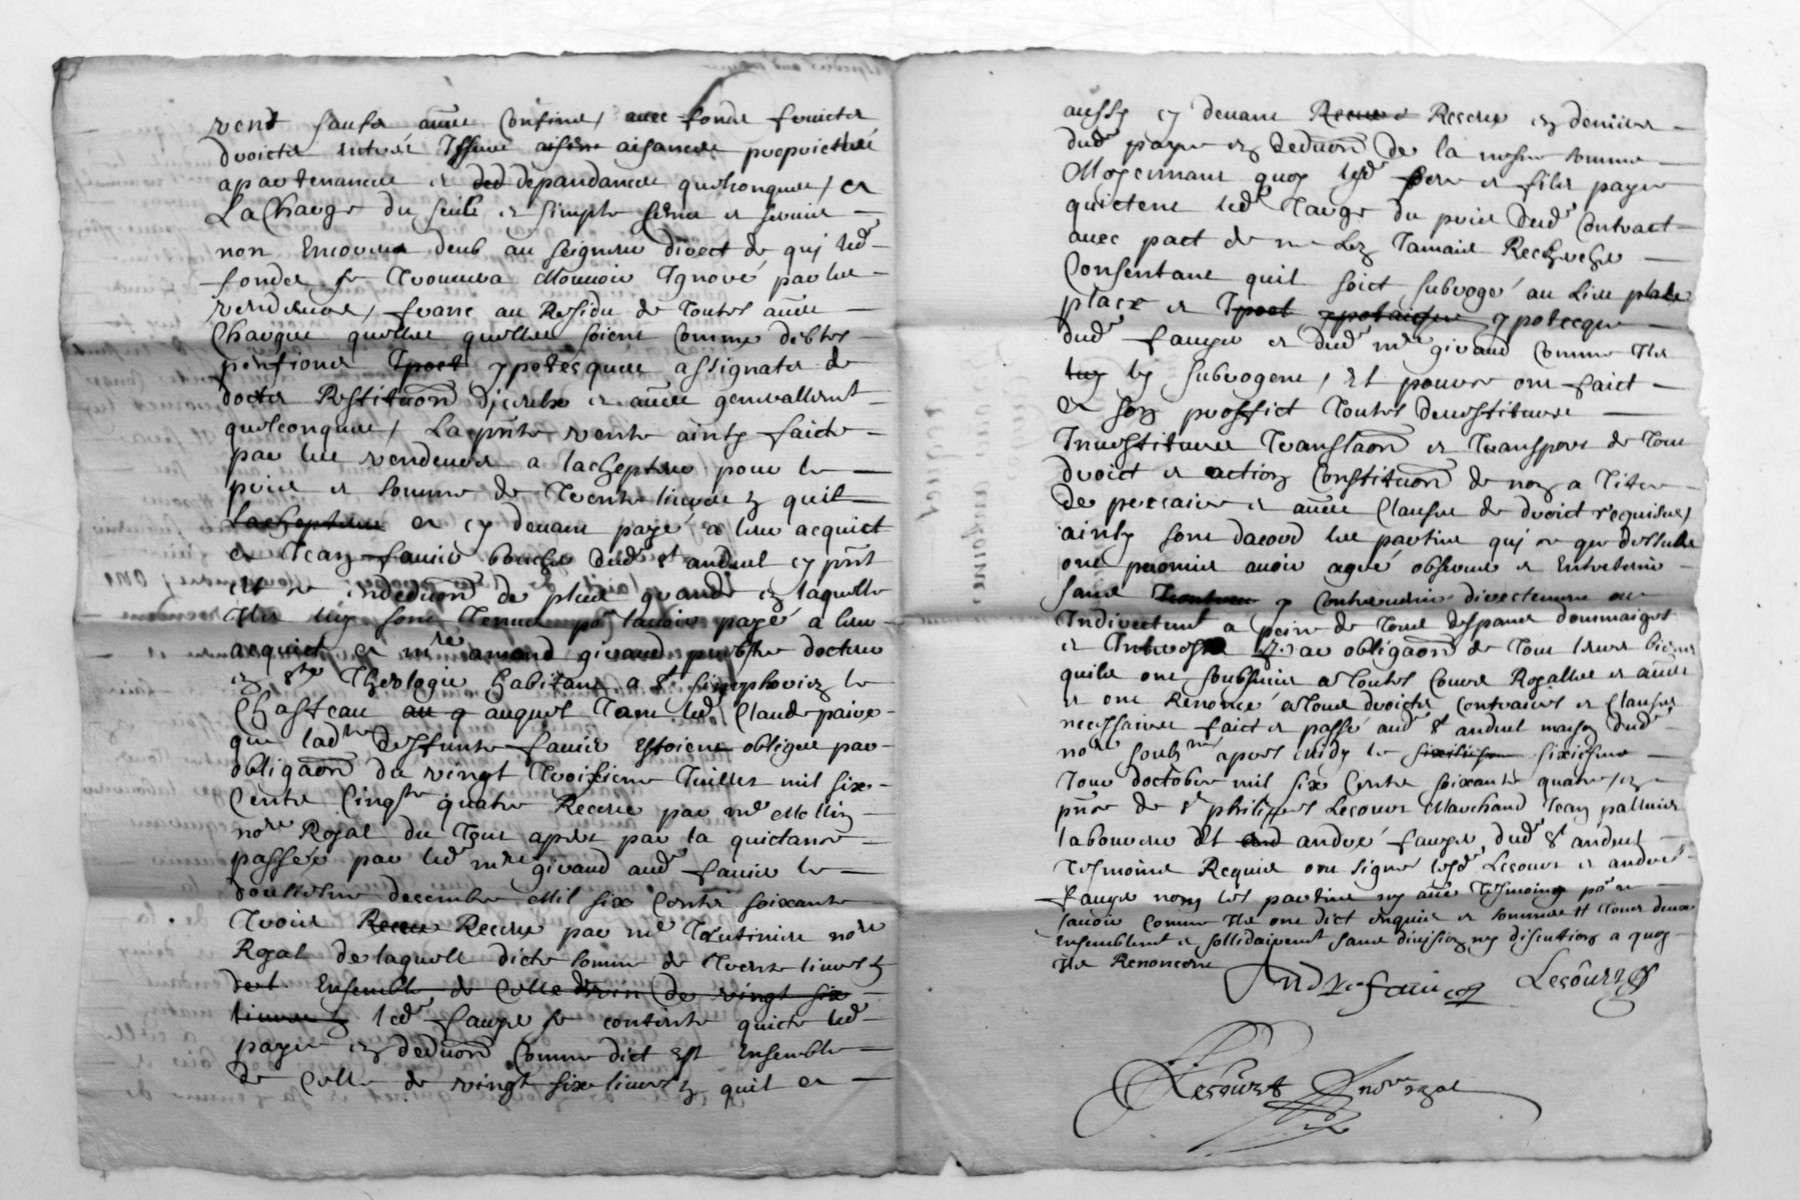 vent saufz autre confins, avec fondz fruictz
droictz entrée yssue aisance proprietés
apartenances et dependances quelconques, et
La Charge du seule et simple cense et servis
non encoures deub au seigneur direct de qui led
fondz se trouvera Mouvoir Ignoré par les
vendeurs, franc au Residu de toutes autres
Charges quelles quelles soient comme debtes
pentions ypotecques assignatz de
doctes Restituõn discrubz et autres generallemt
quelconques, La pñte vente ainsy faicte
par les vendeurs a lachepteur pour le
prix et somme de trente livres tz quil
Lachepteur a cy devant payé a leur acquict
a Jean faurie boucher dud st andeol cy pñt
et en deduõn de plus grande en laquelle
Ilz luy sont Tenus po lavoir payé a leur
acquict a mre amand giraud prebstre docteur
en ste Theologie habitant a st simphorien le
Chasteau auquel tant led Claude paire
que lad deffunte faurie estoient obliges par
obligaõn du vingt troisieme Juillet mil six
Centz Cinqte quatre Receue par me Mellin
nore Royal du Jour apres par la quictance
passée par led mre giraud aud faurie le
doutziesme decembre Mil six Centz soixante
trois Receue Receue par me nore
Royal de laquelle dicte somme de trente livres tz
dert. Ensemble de celle de vingt six
livres tz led faupe se contente quicte led
paye en deduõn comme dict est Ensemble
de celle de vingt six livres tz quil a
aussy cy devant Receue Receue en deniers
dud paye en deduõn de la mesme somme
Moyennant quoy lesd pere et filz paye
quictent led du prix dud contract
avec pact de ne Jamais Recherche
Consentant quil soict subrogé au lieu place
place et ypotecque
dud faupe et dud mre giraud comme Ilz
luy ly subrogent, Et pouvoir ont faict
a son proffict toutes devestiture
Investiture Translaõn et transport de tous
droict et action Constituõn de non a tiltre
de precaire et autres Clausur de droict requises,
ainsy sont dacord les parties qui ce que dessus
ont promis avoir agreé observer et Entretenir
sans y contrevenir directement ou
Indirectemt a peine de tous despans dommaiges
et Interestz par obligaõn de tous leurs biens
quilz ont soubsmis a toutes Cours Royalles et autres
et ont Renoncé a tous droictz contraires et Clauses
necessaires faict et passé aud st andeol maison dud
nore soubzne apres midy le sixiesme
Jour doctobre mil six Centz soixante quatre, en
pñce de sr philippes Lecourt Marchand Jean palluis
laboureur Et andré faupe, dud st andeol
tesmoins Requis ont signe lesd Lecourt et andré
faupe non les parties ny autre tesmoing po ne
savoir comme Ilz ont dict enquis et sommés # tous deux
ensemblemt et sollidairemt sans division ny discution a quoy
Ilz Renoncent
Andre faure Lecourt
Lecourt nore royal